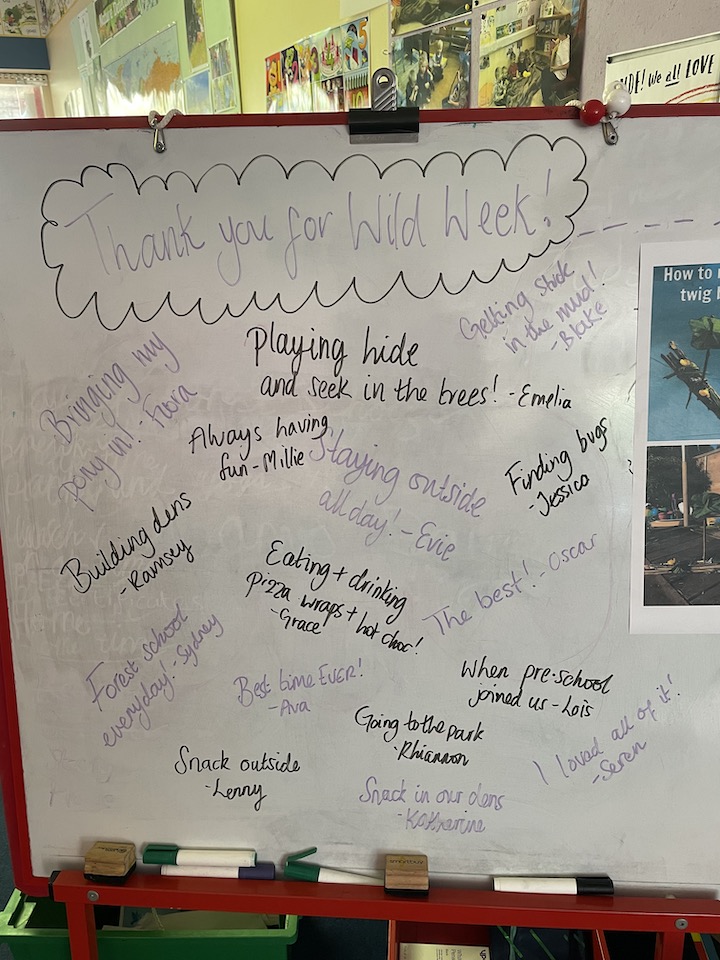 Thank you for Wild Week!
DE! We all LOVE
How to
twig
Getting stuck
in the mud!
- Blake
Playing hide
and seek in the trees! - Emelia
Bringing my
pony in! - Flora
Always having
fun - Millie
Staying outside
all day! - Evie
Finding bugs
- Jessica
Building dens
- Ramsey
Eating + drinking
Pizza wraps + hot choc!
- Grace
The best! - Oscar
Forest school
everyday! - Sydney
Best time EVER!
- Ava
When pre-school
joined us - Lois
Going to the park
- Rhiannon
I loved all of it!
- Seren
Snack outside
- Lenny
Snack in our dens
- Katherine